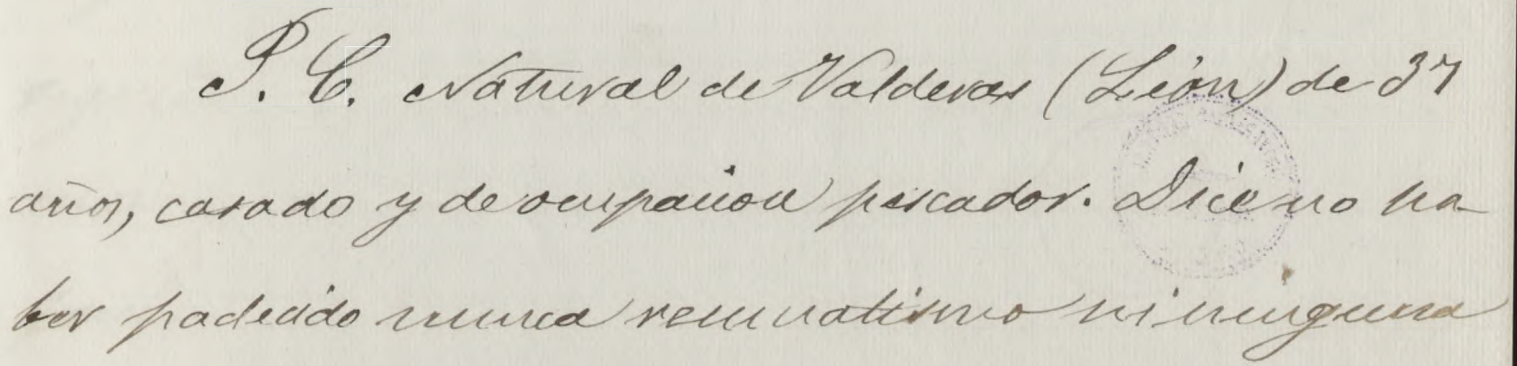 P. C. Natural de Valderas (León) de 37
años, casado y de ocupación pescador. Dice no ha-
ber padecido nunca reumatismo ni ninguna